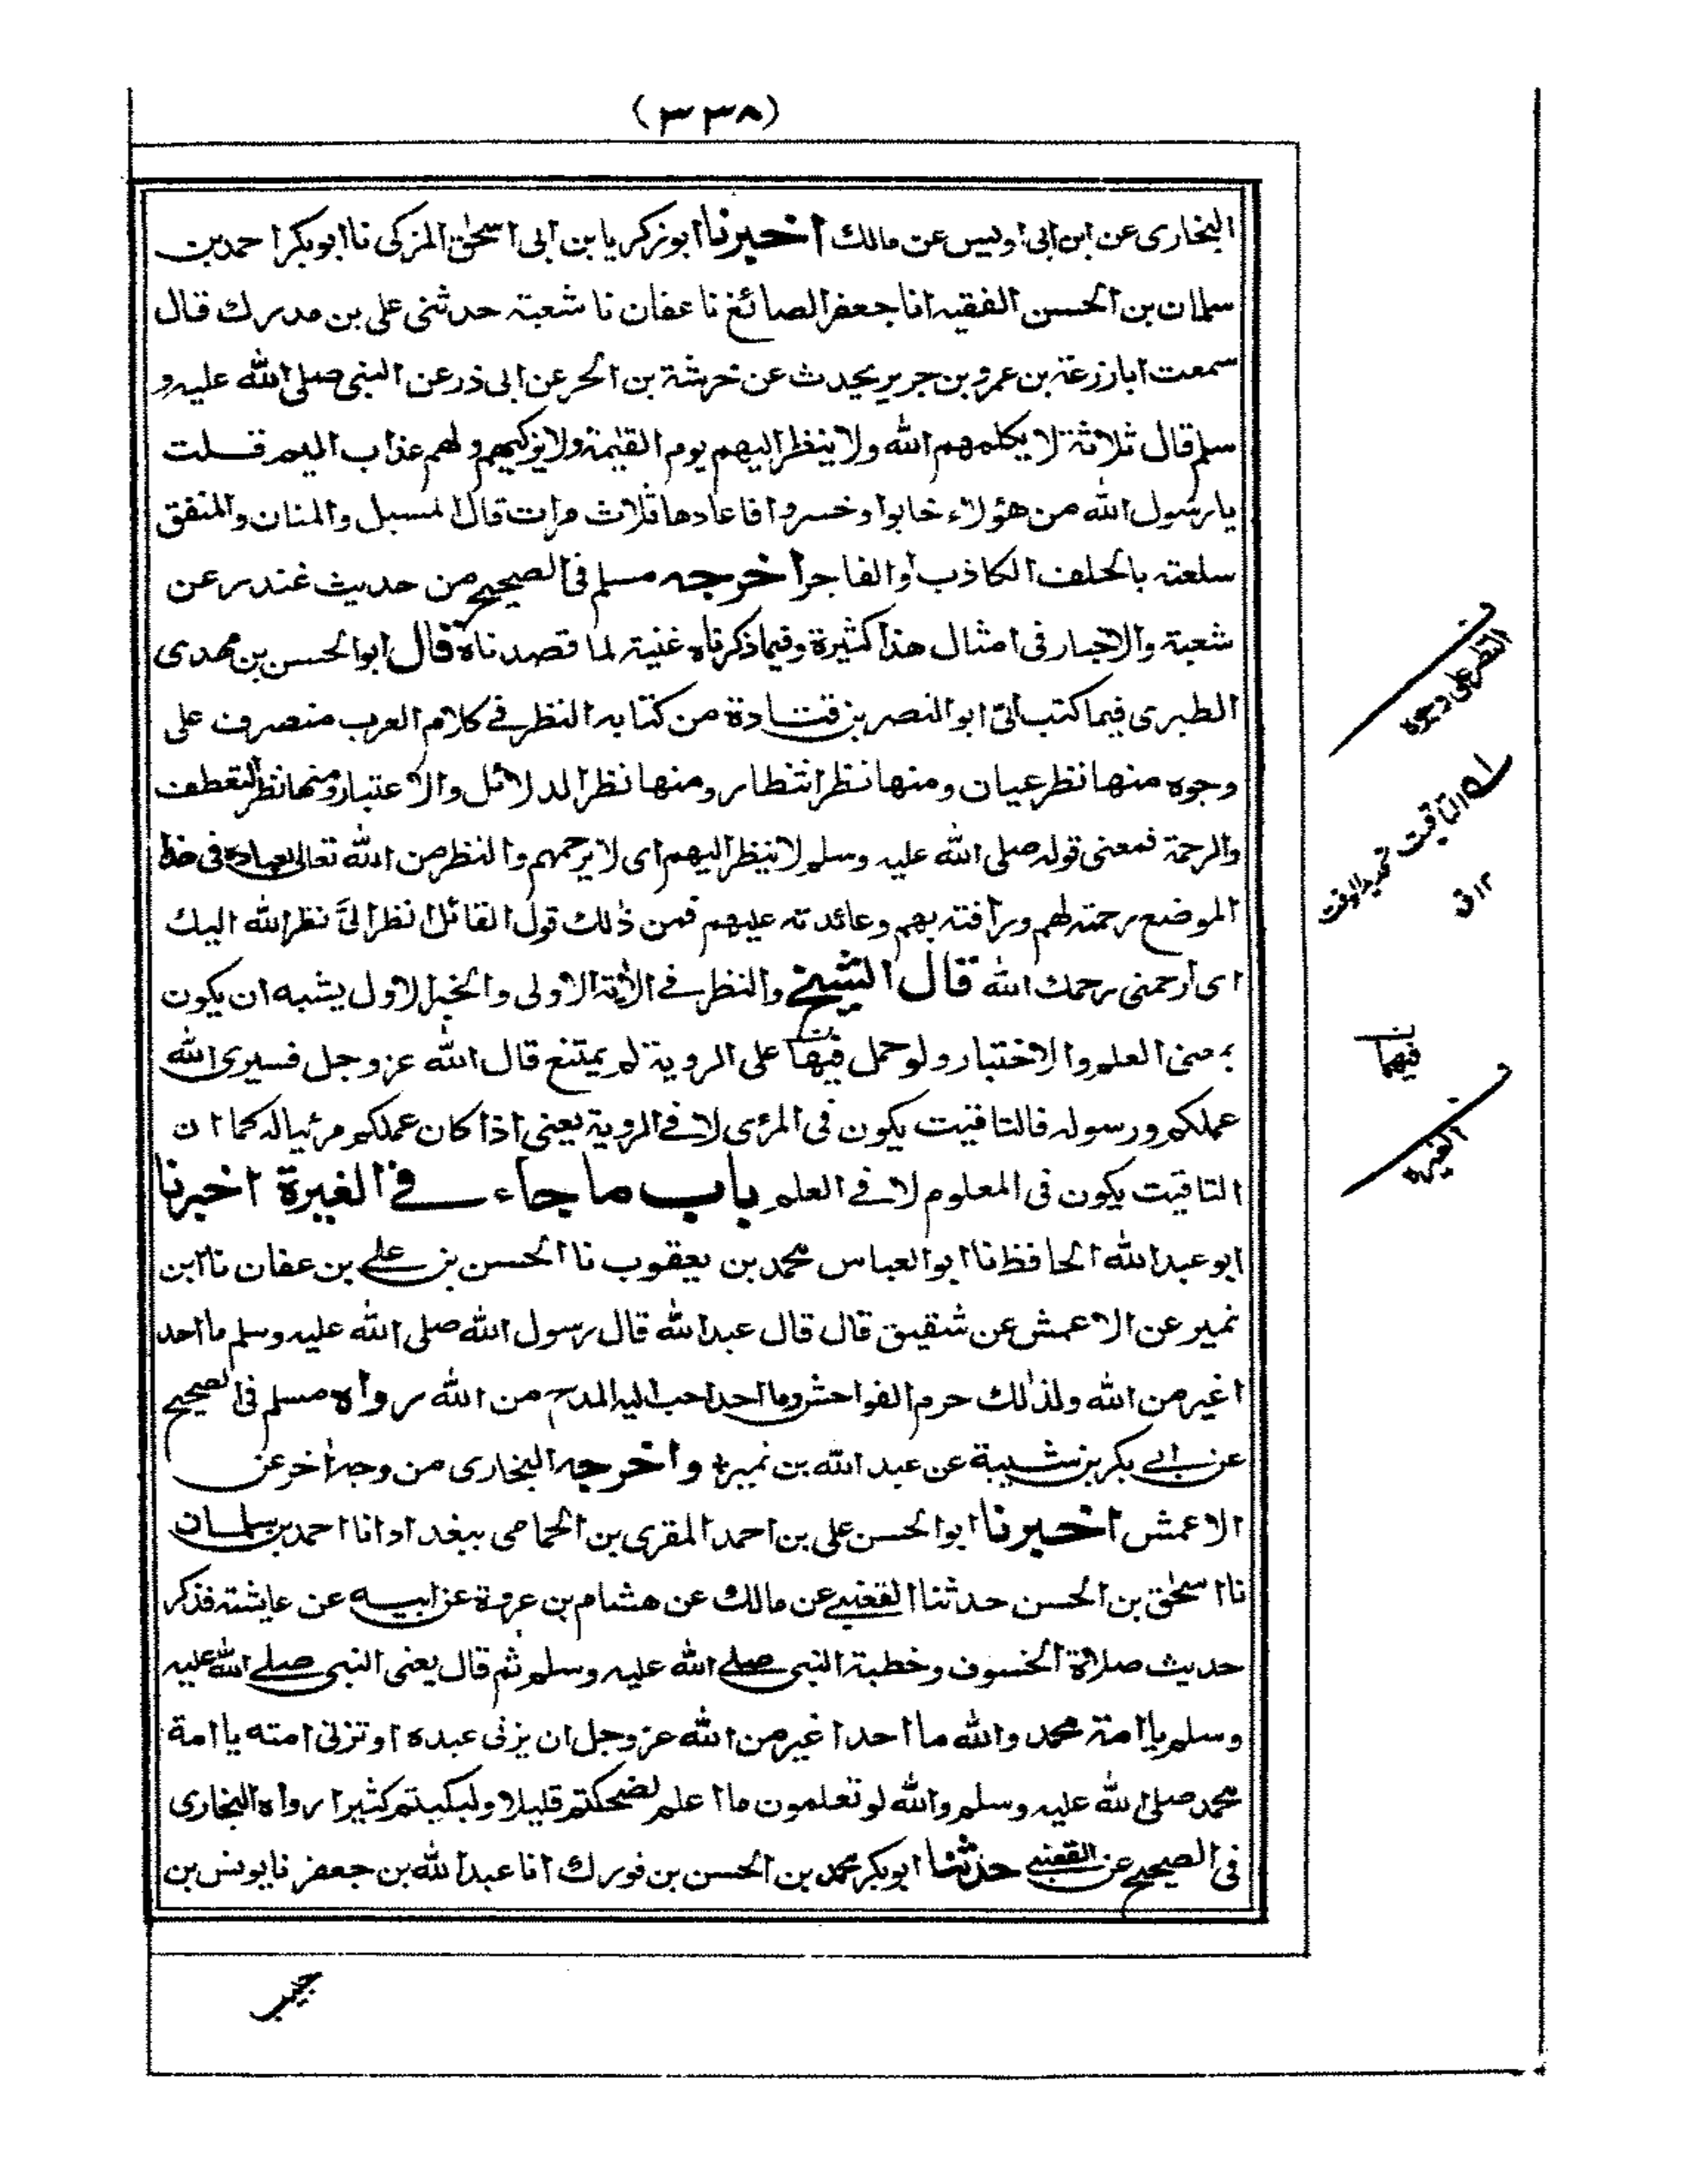 (٣٣٨)
البخارى عن ابن ابى اويس عن مالك اخبرنا ابو زكريا بن ابى اسحٰق المزكى نا ابو بكر احمد بن
سلمان بن الحسن الفقيه انا جعفر الصائغ نا عفان نا شعبة حدثنى على بن مدرك قال
سمعت ابا زرعة بن عمرو بن جرير يحدث عن خرشة بن الحر عن ابى ذر عن النبى صلى الله عليه و
سلم قال ثلاثة لا يكلمهم الله ولا ينظر اليهم يوم القيٰمة ولا يزكيهم ولهم عذاب اليم قلت
يا رسول الله من هؤلاء خابوا وخسروا فاعادها ثلاث مرات قال المسبل والمنان والمنفق
سلعته بالحلف الكاذب او الفاجر اخرجه مسلم فى الصحيح من حديث غندر عن
شعبة والاخبار فى امثال هذا كثيرة وفيما ذكرناه غنية لما قصدناه قال ابو الحسن بن مهدى
الطبرى فيما كتب الىّ ابو النصر بن قتادة من كتابه النظر فى كلام العرب منصرف على
وجوه منها نظر عيان ومنها نظر انتظار ومنها نظر الدلائل والاعتبار ومنها نظر التعطف
والرحمة فمعنى قوله صلى الله عليه وسلم لا ينظر اليهم اى لا يرحمهم والنظر من الله تعالى لعباده فى هذا
الموضع رحمته لهم ورأفته بهم وعائدته عليهم فمن ذٰلك قول القائل انظر الىّ نظر الله اليك
اى ارحمنى رحمك الله قال الشيخ والنظر فى الأية الاولى والخبر الاول يشبه ان يكون
بمعنى العلم والاختبار ولو حمل فيها على الروية لم يمتنع قال الله عز وجل فسيرى الله
عملكم ورسوله فالتاقيت يكون فى المرئى لا فى الروية يعنى اذا كان عملكم مرئيا له كما ان
التاقيت يكون فى المعلوم لا فى العلم باب ما جاء فى الغيرة اخبرنا
ابو عبد الله الحافظ نا ابو العباس محمد بن يعقوب نا الحسن بن على بن عفان نا ابن
نمير عن الاعمش عن شقيق قال قال عبد الله قال رسول الله صلى الله عليه وسلم ما احد
اغير من الله ولذٰلك حرم الفواحش وما احد احب اليه المدح من الله رواه مسلم فى الصحيح
عن ابى بكر بن شيبة عن عبد الله بن نمير واخرجه البخارى من وجه اٰخر عن
الاعمش اخبرنا ابو الحسن على بن احمد المقرى بن الحمامى ببغداد انا احمد بن سلمان
نا اسحٰق بن الحسن حدثنا القعنبى عن مالك عن هشام بن عروة عن ابيه عن عايشة فذكر
حديث صلاة الخسوف وخطبة النبى صلى الله عليه وسلم ثم قال يعنى النبى صلى الله عليه
وسلم يا امة محمد والله ما احد اغير من الله عز وجل ان يزنى عبده او تزنى امته يا امة
محمد صلى الله عليه وسلم والله لو تعلمون ما اعلم لضحكتم قليلا ولبكيتم كثيرا رواه البخارى
فى الصحيح عن القعنبى حدثنا ابو بكر محمد بن الحسن بن فورك انا عبد الله بن جعفر نا يونس بن
النظر على وجوه
التاقيت تحديد الوقت
١٢ ق
فيهما
الغيرة